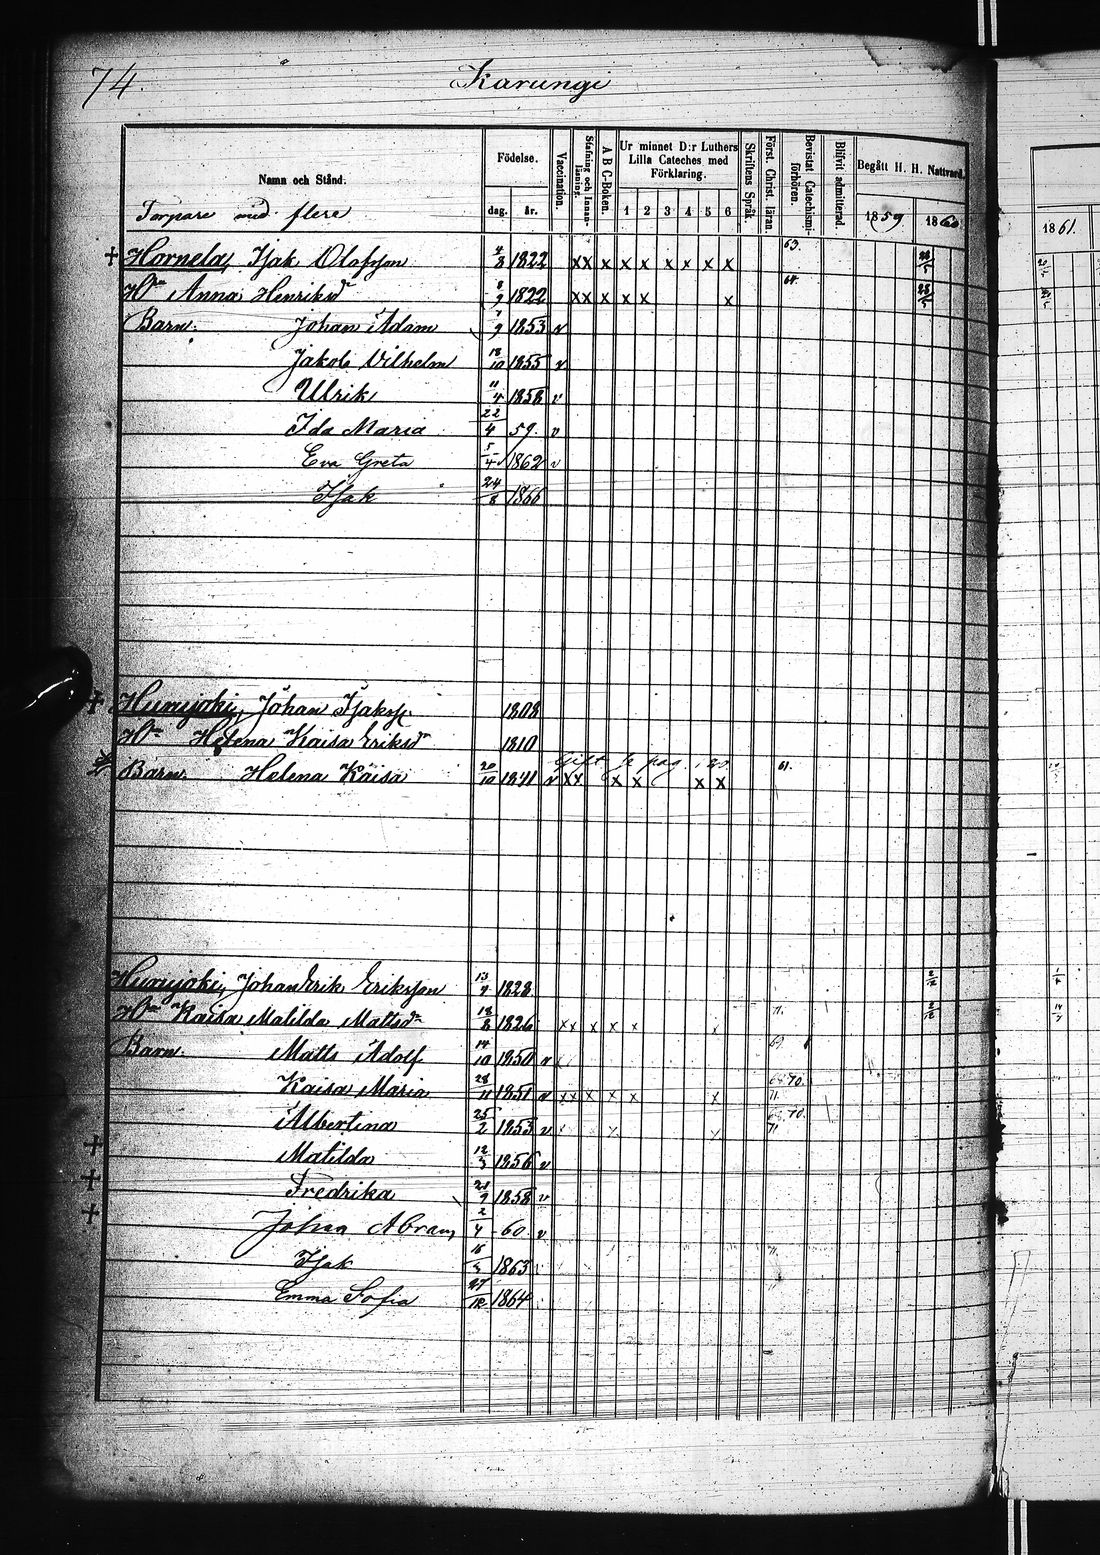 74.
Karungi
Namn och Stånd.
Torpare med flere
Födelse.
dag. år.
Vaccination.
Stafning och Innanläsning.
A B C-Boken.
Ur minnet D:r Luthers Lilla Cateches med Förklaring.
1 2 3 4 5 6
Skriftens Språk.
Först. Christ. läran.
Bevistat Catechismiförhören.
Blifvit admitterad.
Begått H. H. Nattvard.
1859 1860
1861.
+ Hornela, Isak Olofsson 4/8 1822 x x x x x x x x x 63.
Hu Anna Henriksdr 8/9 1822 x x x x x x 64.
Barn: Johan Adam 7/9 1853 v
Jakob Vilhelm 18/10 1855 v
Ulrik 11/4 1858 v
Ida Maria 22/4 59. v
Eva Greta 5/4 1862 v
Isak 24/8 1866
+ Hurujoki, Johan Isakss. 1808
Hu Helena Kaisa Eriksdr 1810
Barn: Helena Kaisa 20/10 1841 v x x x x x x 61.
Gift
Hurujoki, Johan Erik Eriksson 1828
Hu Kaisa Matilda Mattsdr 18/8 1826 x x x x x x 71.
Barn: Matts Adolf 14/10 1850 v
Kaisa Maria 28/11 1851 v x x x x x x 70. 71
Albertina 25/2 1853 v x x x 70. 71
+ Matilda 12/3 1856 v
+ Fredrika 1858 v
+ Johan Abram 2/4 60 v
Isak 1863
Emma Sofia 27/12 1864